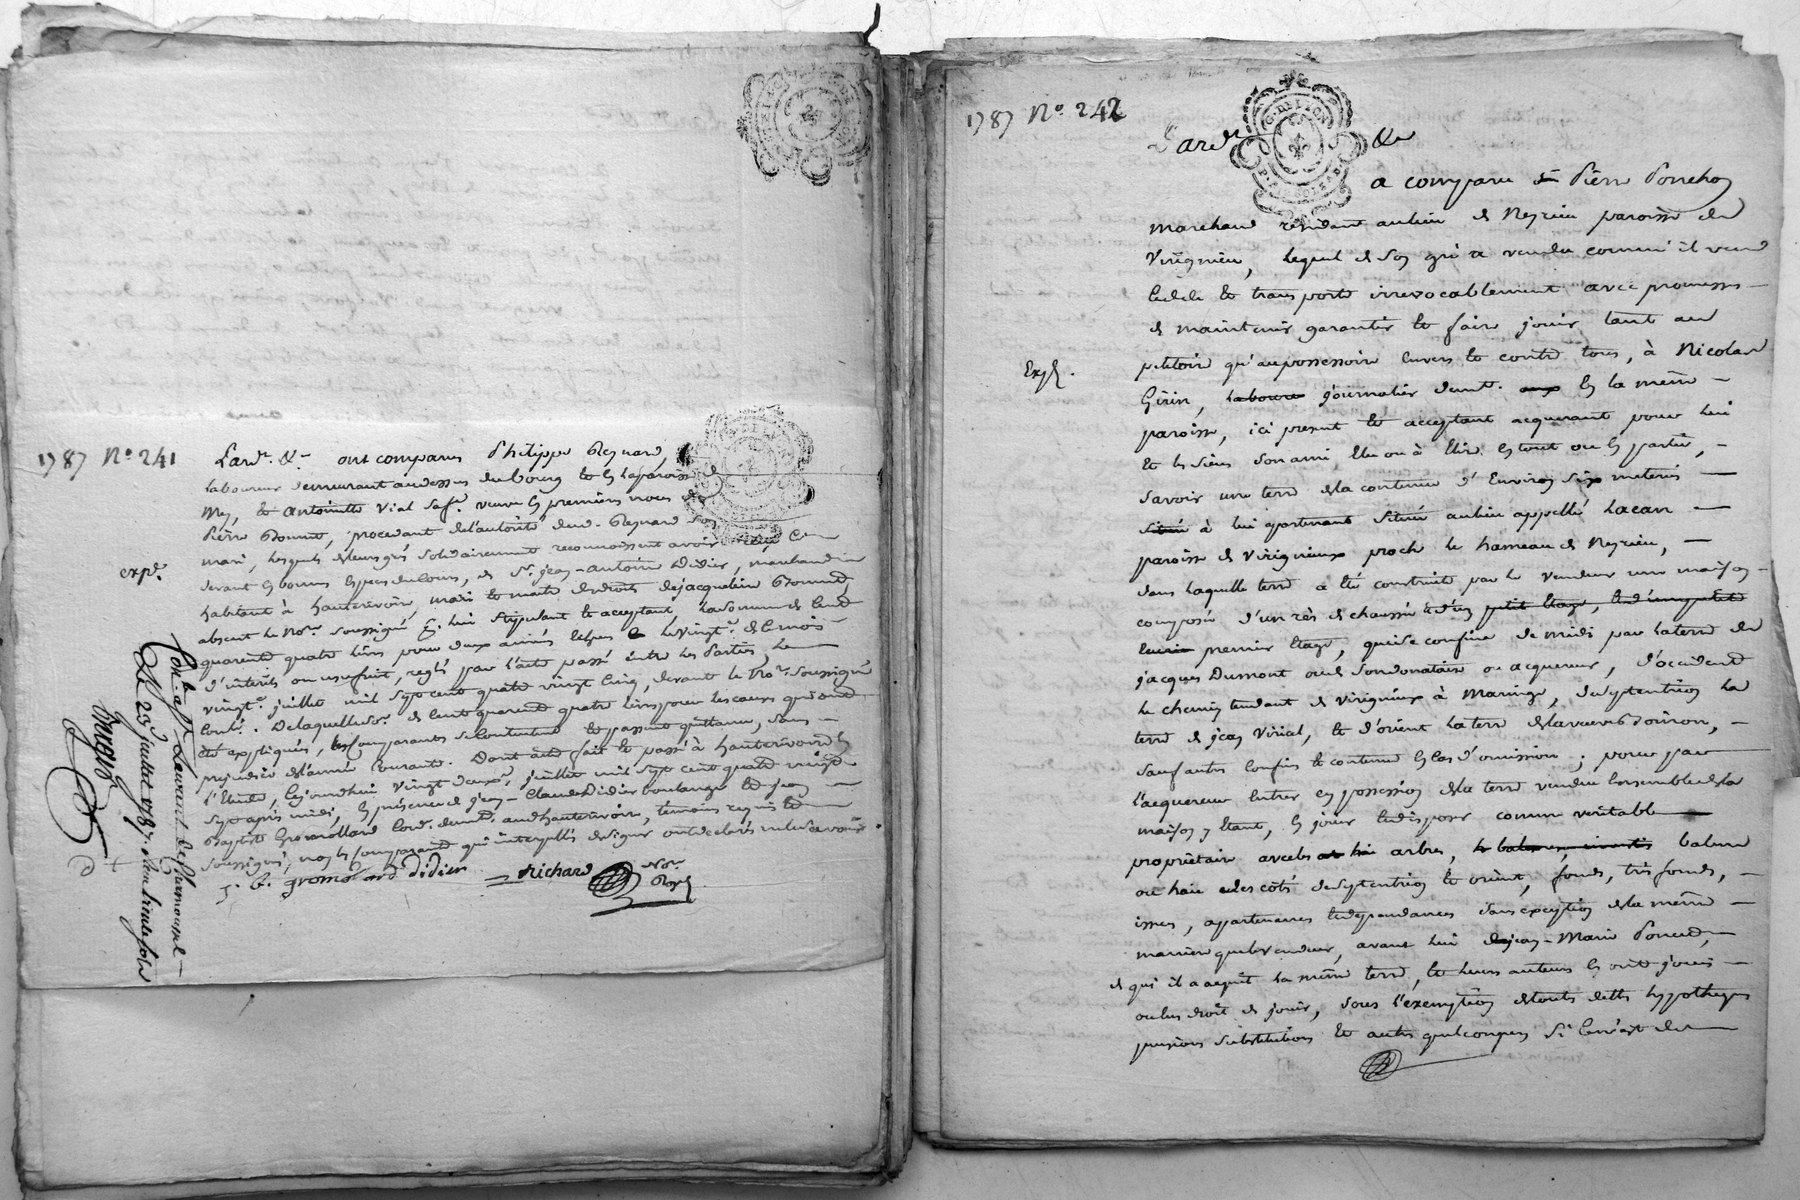 1787 N.o 241
Pard.t &.a ont comparus Philippe Reynard,
laboureur demeurant audessus du bourg et en la paroisse de
Mey, et antoinette Vial sa f.e veuve en premieres noces de
Pierre, procedant de l'autorité dud. Reynard son
mari, lesquels de leurs grés solidairement reconnoissent avoir reçu cy
devant en bonnes especes du cours, de S.r jean-antoine Didier, marchand
habitant à hauterivoire, mari et maitre des droits de jacqueline
absent le No.re soussigné p.r lui stipulant et acceptant, la somme de cent
quarente quatre livres pour deux années echues le vingt.e de ce mois
d'interêts ou usufruit, reglés par l'acte passé entre les Parties, le
vingt.e juillet mil sept cent quatre vingt cinq, devant le No.re soussigné
Cont.é. De laquelle so.e de cent quarente quatre livres pour les causes qui ont
été expliquées, les comparants se contentent et passent quittance, sans
prejudice de l'année courante. Dont acte fait et passé à hauterivoire en
l'Etude, cejourd'hui vingt deux.e juillet mil sept cent quatre vingt
sept après midi, en présence de jean-Claude Didier boulanger et jean
Baptiste Gromollard Cord.r dem.t aud. hauterivoire, temoins requis et
soussignés, non les comparants qui interpellés de signer ont declaré ne le savoir.
J. B. gromolard didier richard No.re
Roy.l
exp.é
Con.lé a S.t Laurent de Chamousset
Le 23 juillet 1787.
1787 N.o 242
G. DE LYON
Pard.t &.a
a comparu S.r Pierre Ponchon
marchand résidant au lieu de Neyrieu paroisse de
Virignieu, lequel de son gré a vendu comme il vend
cede et transporte irrevocablement avec promesses
de maintenir garantir et faire jouir tant au
petitoire qu'au possessoire envers et contre tous, à Nicolas
Exp.é.
Girin, laboure journalier dem.t en la même
paroisse, ici present et acceptant acquerant pour lui
et les siens son ami, elu ou à elire en tout ou en partie,
savoir une terre de la contenue d'environ six meterées
située à lui apartenant située au lieu appellé Lacan
paroisse de Virignieux proche le hameau de Neyrieu,
dans laquelle terre a été construite par le vendeur une maison
composée d'un rés de chaussée et d'un petit etage,
premier etage, qui se confine de midi par la terre de
jacques Dumont ou de son donataire ou acquereur, d'occident
le chemin tendant de Virignieux à Maringe, de septentrion la
terre de jean Virial, et d'orient la terre de la veuve,
sauf autres confins et contenue en cas d'omission; pour par
l'acquereur entrer en possession de la terre vendue ensemble de la
maison y etant, en jouir et disposer comme veritable
propriétaire avec les arbres, balme
ou haie des cotés de septentrion et orient, fonds, très fonds,
issues, appartenances et dependances sans exception de la même
maniere que le vendeur, avant lui jean-Marie Poncet,
de qui il a acquit la même terre, et leurs auteurs en ont joui
ou eu droit de jouir, sous l'exemption de toutes dettes hypotheques
pensions substitutions et autres quelconques si ce n'est de